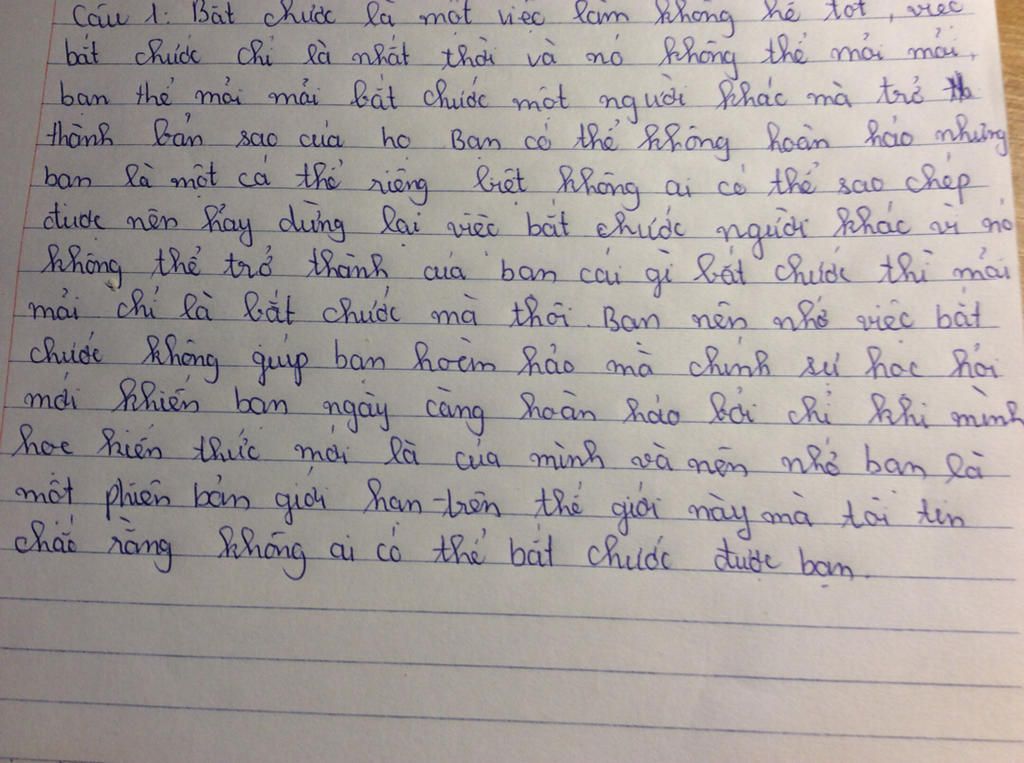 Câu 1: Bắt chước là một việc làm không hề tốt, việc
bắt chước chỉ là nhất thời và nó không thể mãi mãi,
bạn thể mải mải bắt chước một người khác mà trở th
thành bản sao của họ Bạn có thể không hoàn hảo nhưng
bạn là một cá thể riêng biệt không ai có thể sao chép
được nên hãy dừng lại việc bắt chước người khác vì nó
không thể trở thành của bạn cái gì bắt chước thì mải
mải chỉ là bắt chước mà thôi. Bạn nên nhớ việc bắt
chước không giúp bạn hoàn hảo mà chính sự học hỏi
mới khiến bạn ngày càng hoàn hảo bởi chỉ khi mình
học kiến thức mới là của mình và nên nhớ bạn là
một phiên bản giới hạn trên thế giới này mà tôi tin
chắc rằng không ai có thể bắt chước được bạn.